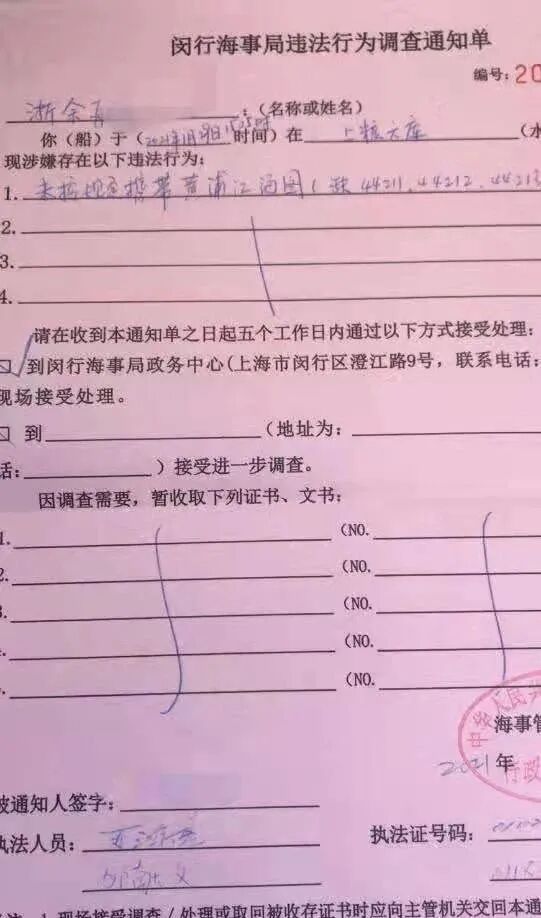 闵行海事局违法行为调查通知单
编号：20
浙余 ：（名称或姓名）
你（船）于（2021年 时间）在 上粮六库 （水
现涉嫌存在以下违法行为：
1. 未按规定携带黄浦江海图（缺44211、44212、44213
2.
3.
4.
请在收到本通知单之日起五个工作日内通过以下方式接受处理：
☐ 到闵行海事局政务中心(上海市闵行区澄江路9号，联系电话：
现场接受处理。
☐ 到 （地址为：
话： ）接受进一步调查。
因调查需要，暂收取下列证书、文书：
1. （NO.
2. （NO.
3. （NO.
（NO.
（NO.
中华人民共
海事管
2021年
行政
被通知人签字：
执法人员：
执法证号码：
1.现场接受调查／处理或取回被收存证书时应向主管机关交回本通